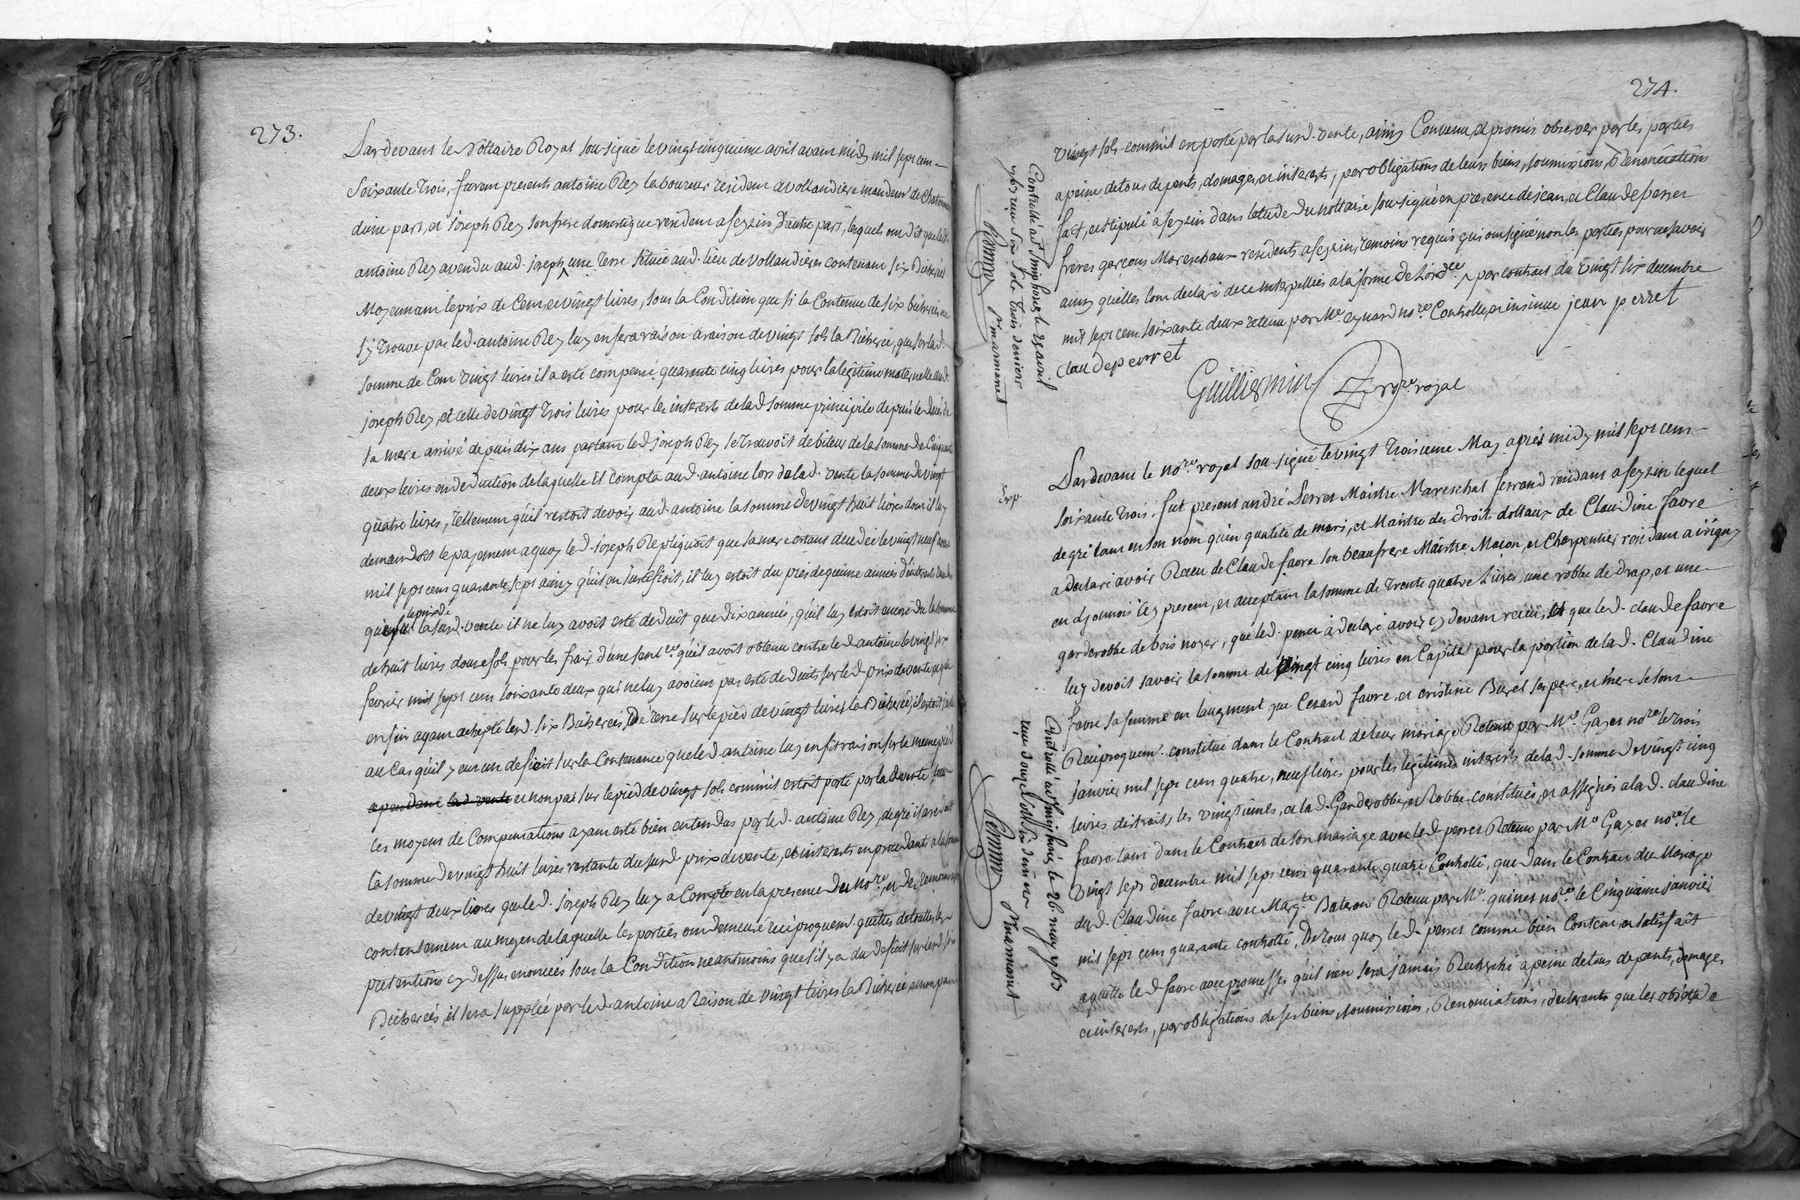 273.
Pardevant le Nottaire Royal sousigné le vingt cinquieme avril avant midy mil sept cent
soixante trois, furent presents antoine Rey laboureur resident a vollandiere mandement de
d'une part, et joseph Rey son frere domestique resident a seyzin d'autre part, lesquels ont dit que led.
antoine Rey a vendu aud. joseph une terre située aud. lieu de vollandieres contenant six Bicherées
Moyennant le prix de Cent et vingt livres, sous la Condition que si la Contenue de six bicherées ne
s'y trouve pas led. antoine Rey luy en fera raison a raison de vingt sols la Bicherée, que sur lad.
somme de Cent vingt livres il a esté compensé quarante cinq livres pour la légitime maternelle dud.
joseph Rey, et celle de vingt trois livres pour les interets de lad. somme principile depuis le deces de
sa mere arrivé depuis dix ans partant led. joseph Rey se trouvoit debiteur de la somme de Cinquante
deux livres en deduction de laquelle il compta aud. antoine lors de lad. vente la somme de vingt
quatre livres, tellement qu'il restoit devoir aud. antoine la somme de vingt huit livres dont il luy
demandoit le payement a quoy led. joseph Repliquoit que sa mere estant decedée le vingt neuf
mil sept cens quarante sept ainsy qu'il en justifioit, il luy estoit du pres de quinze années d'interests
que lors de la susd. vente il ne luy avoit esté deduit que dix années, qu'il luy estoit encore du la somme
de huit livres douse sols pour les frais d'une sentce qu'il avoit obtenu contre led. antoine le vingt six
fevrier mil sept cent soixante deux qui ne luy avoient pas esté deduits sur led. prix de vente
enfin ayant achepté lesd. six Bicherées de terre sur le pied de vingt livres la Bicherée, il estoit
au Cas qu'il y eut un deficit sur la Contenance que led. antoine luy en fit raison sur le meme pied
et non pas sur le pied de vingt sols comm'il estoit porté par la d. vente
les moyens de Compensations ayant esté bien entendus par led. antoine Rey, de gré il a reduit
la somme de vingt huit livres restante du susd. prix de vente, et interests en procedants a la somme
de vingt deux livres que led. joseph Rey luy a Compté en la presence du Nore, et des temoins
contentement au moyen de laquelle les parties ont demeuré reciproquemt. quittes de toutes les
pretentions cy dessus enoncées sous la Condition neantmoins que s'il y a du deficit sur lesd. six
Bicherées, il sera supplée par led. antoine a Raison de vingt livres la Bicherée et non pas
274.
vingt sols comm'il en porté par la susd. vente, ainsy Convenu, et promis observer par les parties
a peine de tous depents, domages, et interests, par obligations de leurs biens, soumissions, Renonciations
fait, et stipulé a seyzin dans l'etude du nottaire sousigné en presence de jean, et Claude perret
freres garçons Mareschaux residents a seyzin, temoins requis qui ont signé non les parties pour ne savoir
ainsy qu'elles l'ont declaré de ce interpellées a la forme de l'ordce par contract du vingt six decembre
mil sept cent soixante deux retenu par Me eynard nore. Controllé, et insinué jean perret
claude perret
Guilliermin nore royal
Controllé a St Simphorien le 28 avril
1763 reçu
Parmarmet
Pardevant le nore. royal sousigné le vingt troisieme May apres midy mil sept cent
soixante trois. fut present andré Perret Maistre Mareschal ferrand residant a seyzin lequel
de gré tant en son nom qu'en qualité de mari, et Maistre des droit dottaux de Claudine favre
a declaré avoir Receu de Claude favre son beaufrere Maistre Masson, et Charpentier residant a irigny
en dyonnois icy present, et acceptant la somme de trente quatre livres, une robbe de drap, et une
garderobbe de bois noyer, que led. perret a declaré avoir cy devant receu, et que led. claude favre
luy devoit savoir la somme de vingt cinq livres en Capital pour la portion de lad. Claudine
favre sa femme en l'augment que Cesard favre et cristine Burel ses pere, et mere se sont
Reciproquemt. constitué dans le Contrait de leur mariage Retenu par Me. Gayet nore. le trois
janvier mil sept cent quatre, neuf livres pour les légitimes interets de lad. somme de vingt cinq
livres distraits les vingtiemes, et lad. Garderobbe, et Robbe constitués, et assignés a lad. claudine
favre tant dans le Contract de son mariage avec led. perret Retenu par Me Gayet nore. le
vingt sept decembre mil sept cens quarante quatre Controllé, que dans le Contract du Mariage
dud. Claudine favre avec Margte. Retenu par Me. quinet nore. le Cinquieme janvier
mil sept cens quarante controllé, De tous quoy led. perret comme bien Content et satisfait
a quitté led. favre avec promesses qu'il n'en sera jamais Recherché a peine de tous depents, domages
et interests, par obligations de ses biens, soumissions, Renonciations, declarants que les objets de
Exp.
Controllé a St Simphorien le 26 may 1763
reçu douze sols six deniers
Parmarmet